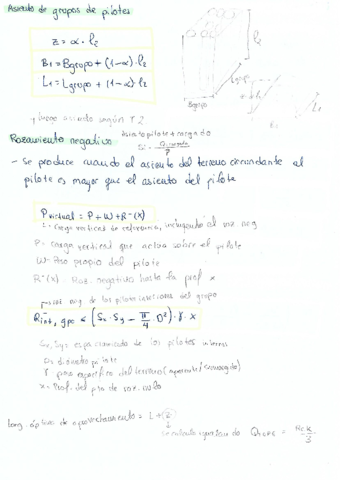 Asiento de grupos de pilotes
z = α · l₂
B₁ = Bgrupo + (1-α) · l₂
L₁ = Lgrupo + (1-α) · l₂
l₂
Bgrupo
L₁
y luego asiento según T2
asiento pilote + cargado
Rozamiento negativo
- Se produce cuando el asiento del terreno circundante al
pilote es mayor que el asiento del pilote
Pvirtual = P + W + R⁻(x)
carga vertical de referencia, incluyendo el roz neg
P = carga vertical que actúa sobre el pilote
W = Peso propio del pilote
R⁻(x) = Roz. negativo hasta la prof x
roz neg de los pilotes interiores del grupo
R⁻int, gpo ≤ (Sx · Sy - π/4 D²) · γ · x
Sx, Sy = espaciamiento de los pilotes internos
D = diámetro pilote
γ peso específico del terreno (aparente/sumergido)
x = Prof. del pto de roz. nulo
Long. óptima de aprovechamiento = L +
se calcula